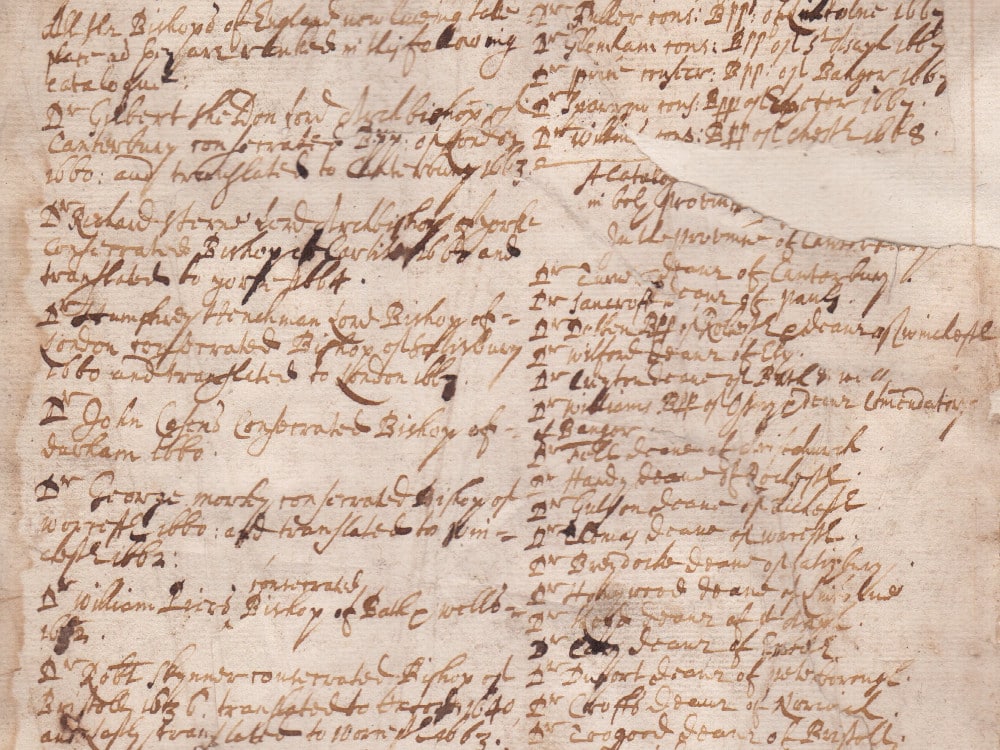 All the Bishops of England now liveing take
place and are ranked in this following
catalogue
Dr Gilbert Sheldon lord Archbishop of
Canterbury consecrated Bpp: of London
1660: and translated to Canterbury 1663
Dr Richard Sterne Lord Archbishop of yorke
consecrated Bishop of Carlile 166 and
translated to yorke 1664.
Dr Humphrey Henchman Lord Bishop of
London consecrated Bishop of Salisbury
1660 and translated to London 1663
Dr John Cosens Consecrated Bishop of
durham 1660.
Dr George morley consecrated Bishop of
worcestr 1660: and translated to win-
chestr 1662:
consecrated
Dr William Peirs Bishop of Bath & wells
1632.
Dr Robt Skynner consecrated Bishop of
Bristoll 1636. translated to 1640
and lastly translated to worcestr 1663.
Dr Fuller cons: Bpp: of Lincolne 1667
Dr Glemham cons: Bpp of St Asaph 1667
Dr consecr: Bpp: of Bangor 1667
Dr cons: Bpp of Exeter 1667.
Dr cons: Bpp of chestr 1668.
A Catalog
in both Provin
In the province of Canterbury
Dr deane of Canterbury
Dr Sancroft deane of pauls.
Dr Dolben Bpp of Rochestr & deane of winchestr
Dr wilford deane of Ely.
Dr deane of Bath & wells
Dr williams Bpp of Ossory & deane Comendatory
of Bangor
Dr Fell deane of christchurch
Dr Hardy deane of Rochestr
Dr deane of chichestr
Dr Thomas deane of worcestr.
Dr deane of salisbury
Dr Honywood deane of Lincolne
Dr deane of St
Dr Cary deane of Exetr.
Dr Duport deane of peterborough.
Dr Croffts deane of Norwich.
Dr Toogood deane of Bristoll.